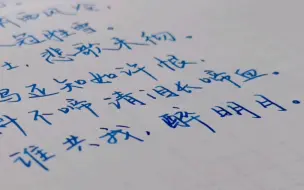 西风冷,
冠 雪。
士、悲歌未彻。
鸟 知如许恨,
料不啼清泪长啼血。
谁共我,醉明月。